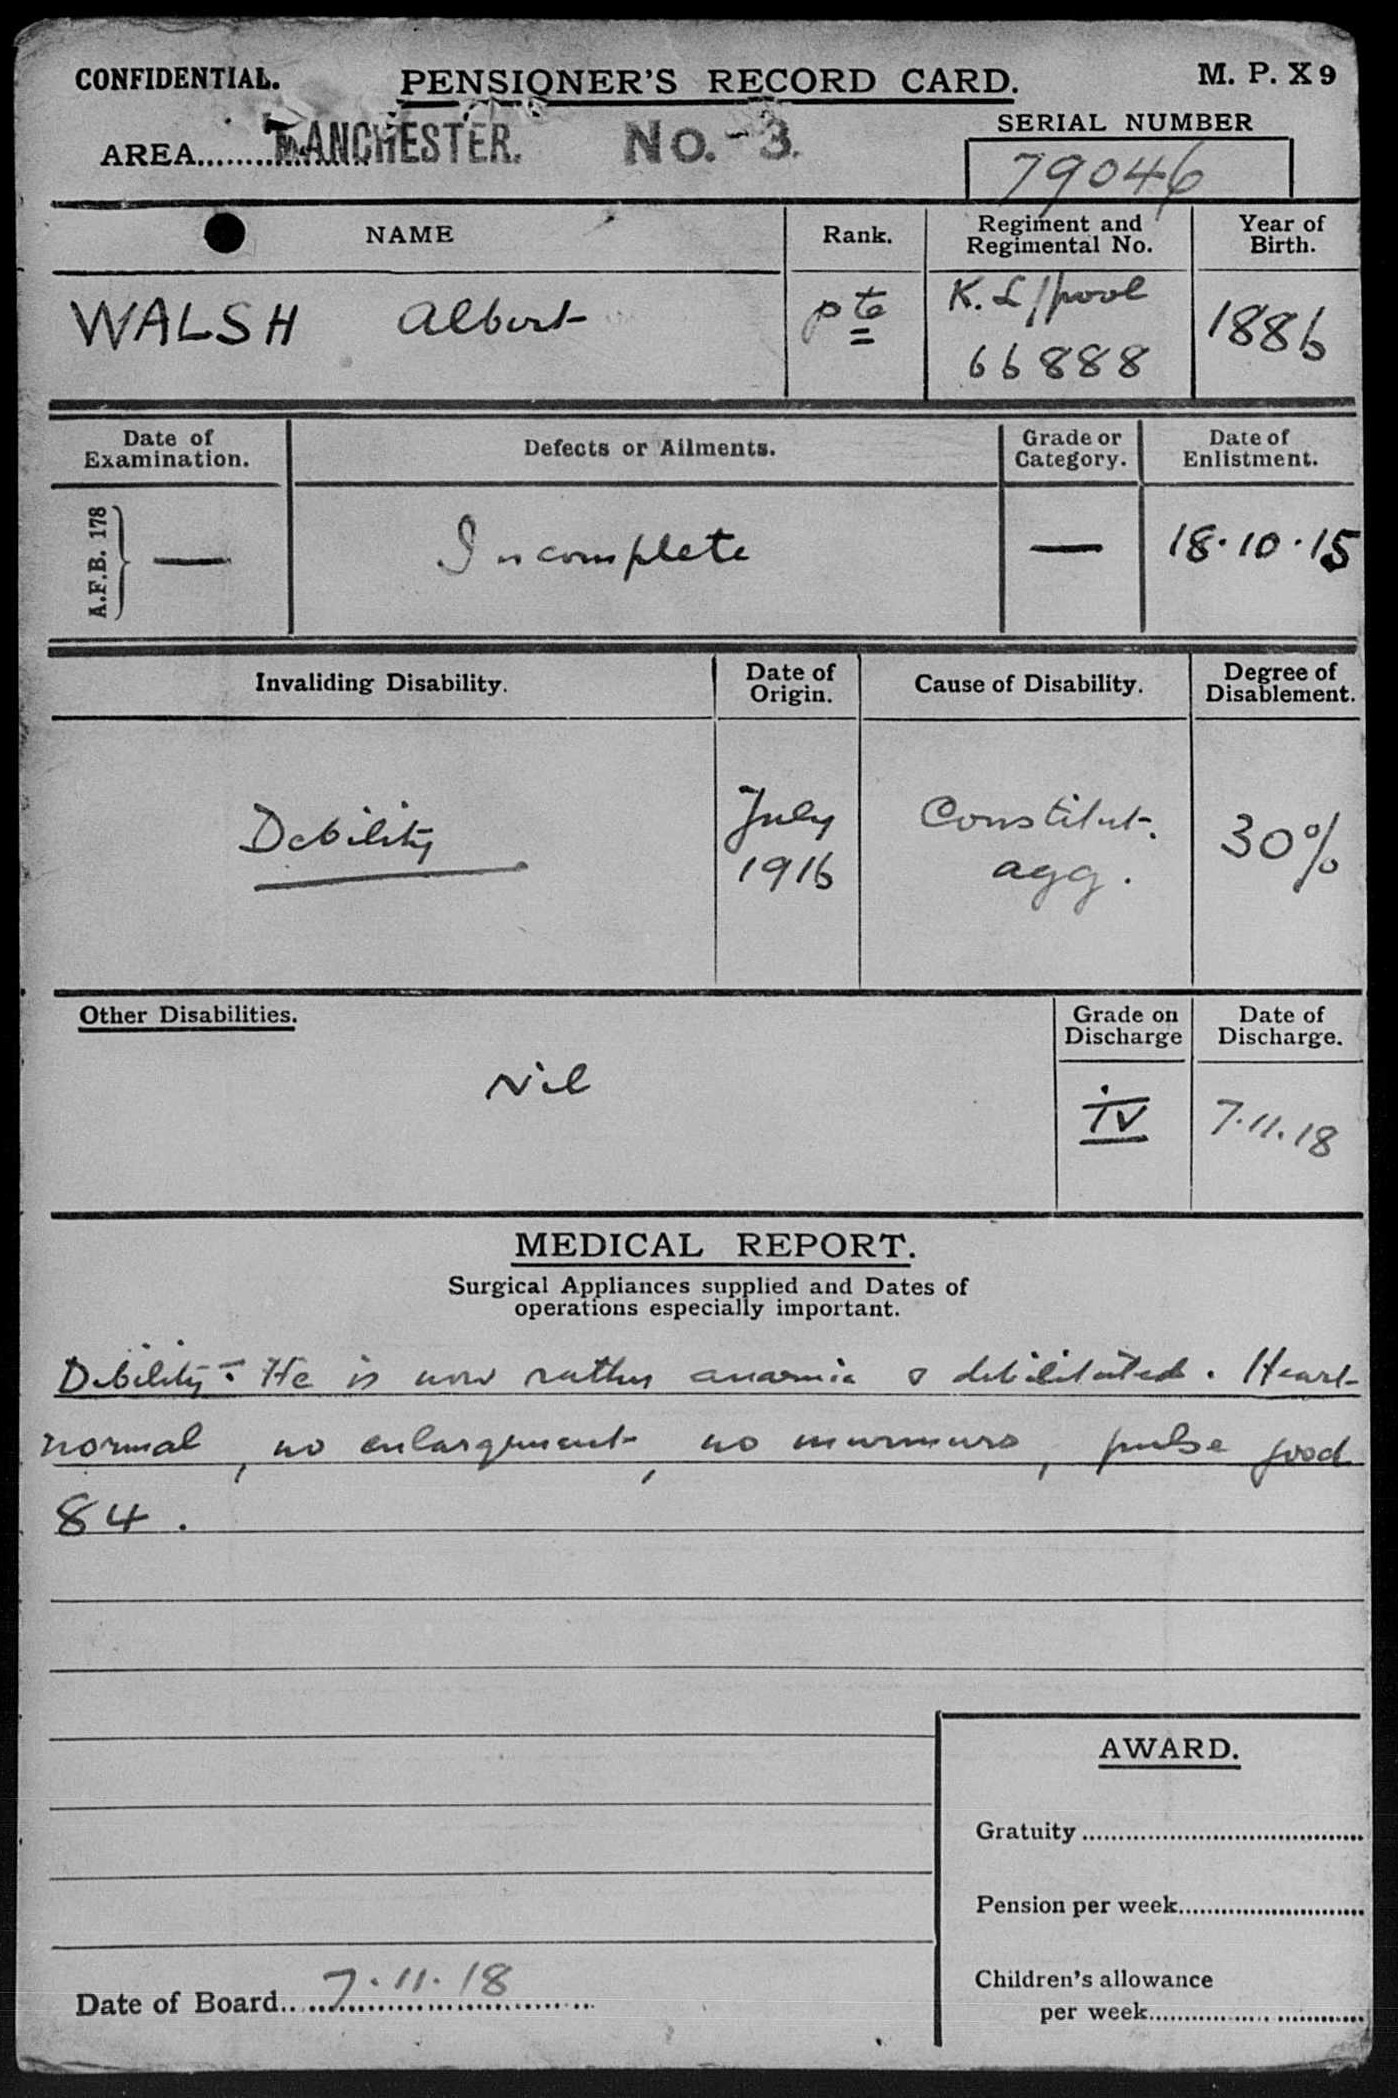 CONFIDENTIAL. PENSIONER'S RECORD CARD. M. P. X 9
AREA........ MANCHESTER. No.-3.
SERIAL NUMBER
79046
NAME
Rank.
Regiment and
Regimental No.
Year of
Birth.
WALSH Albert
Pte
K. L/pool
66888
1886
Date of
Examination.
Defects or Ailments.
Grade or
Category.
Date of
Enlistment.
A.F.B. 178
—
Incomplete
—
18.10.15
Invaliding Disability.
Date of
Origin.
Cause of Disability.
Degree of
Disablement.
Debility
July
1916
Constitut.
agg.
30%
Other Disabilities.
Grade on
Discharge
Date of
Discharge.
Nil
iv
7.11.18
MEDICAL REPORT.
Surgical Appliances supplied and Dates of
operations especially important.
Debility:- He is now rather anaemic & debilitated. Heart
normal, no enlargement, no murmurs, pulse good
84.
AWARD.
Gratuity
Pension per week
Children's allowance
per week
Date of Board 7.11.18